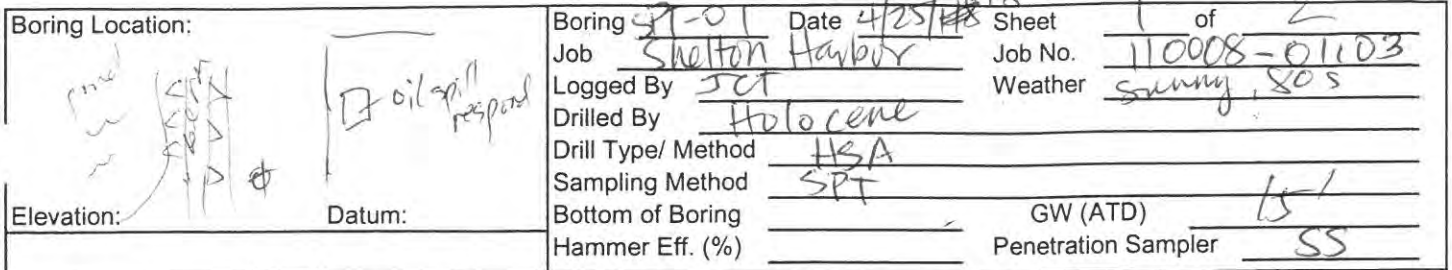 Boring Location:
pond
berm
oil spill
respond
Elevation:
Datum:
Boring SPT-01 Date 4/25/18 Sheet 1 of 2
Job Shelton Harbor Job No. 110008-01.03
Logged By JCT Weather Sunny, 80s
Drilled By Holocene
Drill Type/ Method HSA
Sampling Method SPT
Bottom of Boring GW (ATD) 15'
Hammer Eff. (%) Penetration Sampler SS